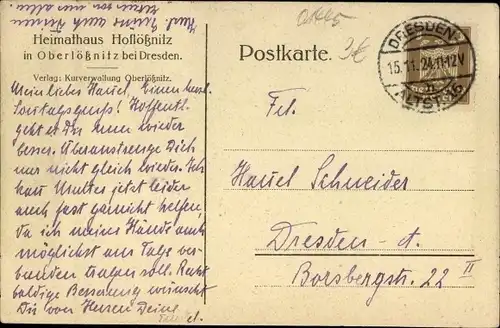 Heimathaus Hoflößnitz
in Oberlößnitz bei Dresden.
Verlag: Kurverwaltung Oberlößnitz.
Mein liebes Hansel, Einen herzl.
Sonntagsgruß! Hoffentl.
geht es Dir nun wieder
besser. Überanstrenge Dich
nur nicht gleich wieder. Ich
kann Mutter jetzt leider
auch fast garnicht helfen,
da ich meine Hände auch
möglichst am Tage ver-
bunden tragen soll. Recht
baldige Besserung wünscht
Dir von Herzen Deine
Postkarte.
DRESDEN-
15.11.24.11-12V
ALTST. 16
Frl.
Hansel Schneider
Dresden - A.
Borsbergstr. 22 II